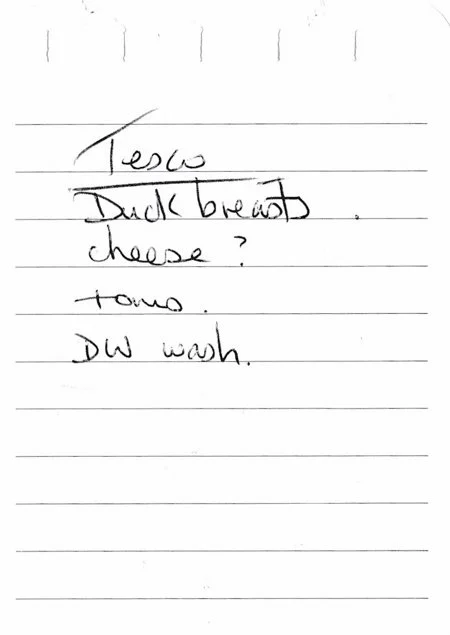 Tesco
Duck breasts.
cheese?
toms.
DW wash.